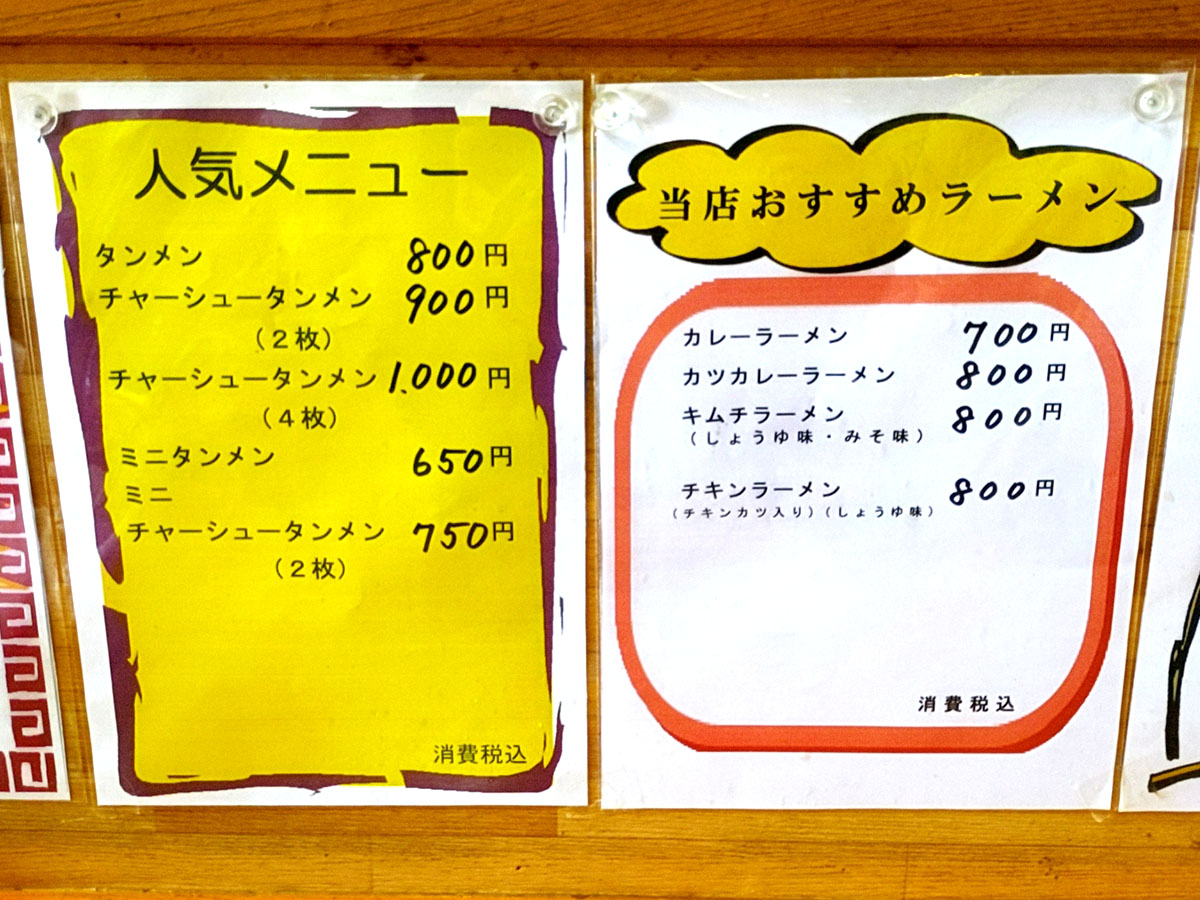 人気メニュー
タンメン 800円
チャーシュータンメン 900円
(2枚)
チャーシュータンメン 1.000円
(4枚)
ミニタンメン 650円
ミニ
チャーシュータンメン 750円
(2枚)
消費税込
当店おすすめラーメン
カレーラーメン 700円
カツカレーラーメン 800円
キムチラーメン 800円
(しょうゆ味・みそ味)
チキンラーメン 800円
(チキンカツ入り)(しょうゆ味)
消費税込